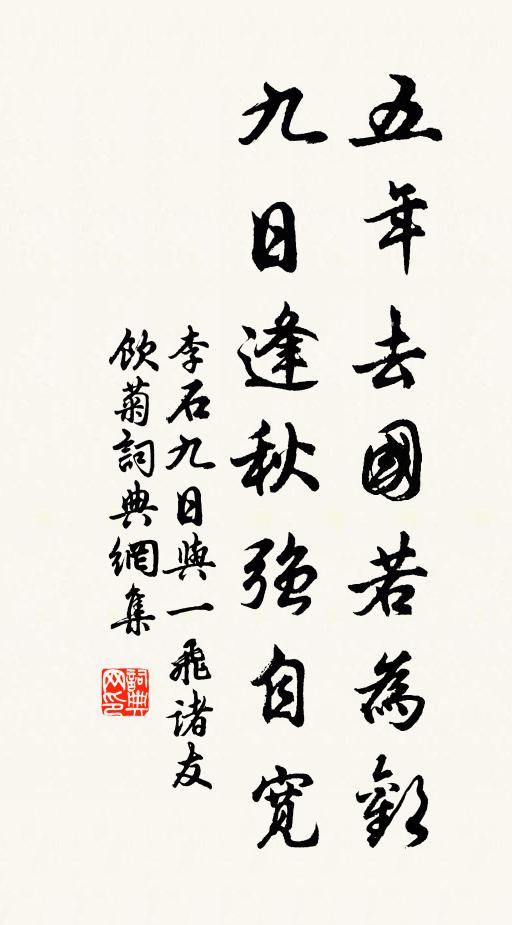 五年去國若為歡
九日逢秋強自寬
李石九日與一飛諸友
飲菊詞典網集
詞典網印